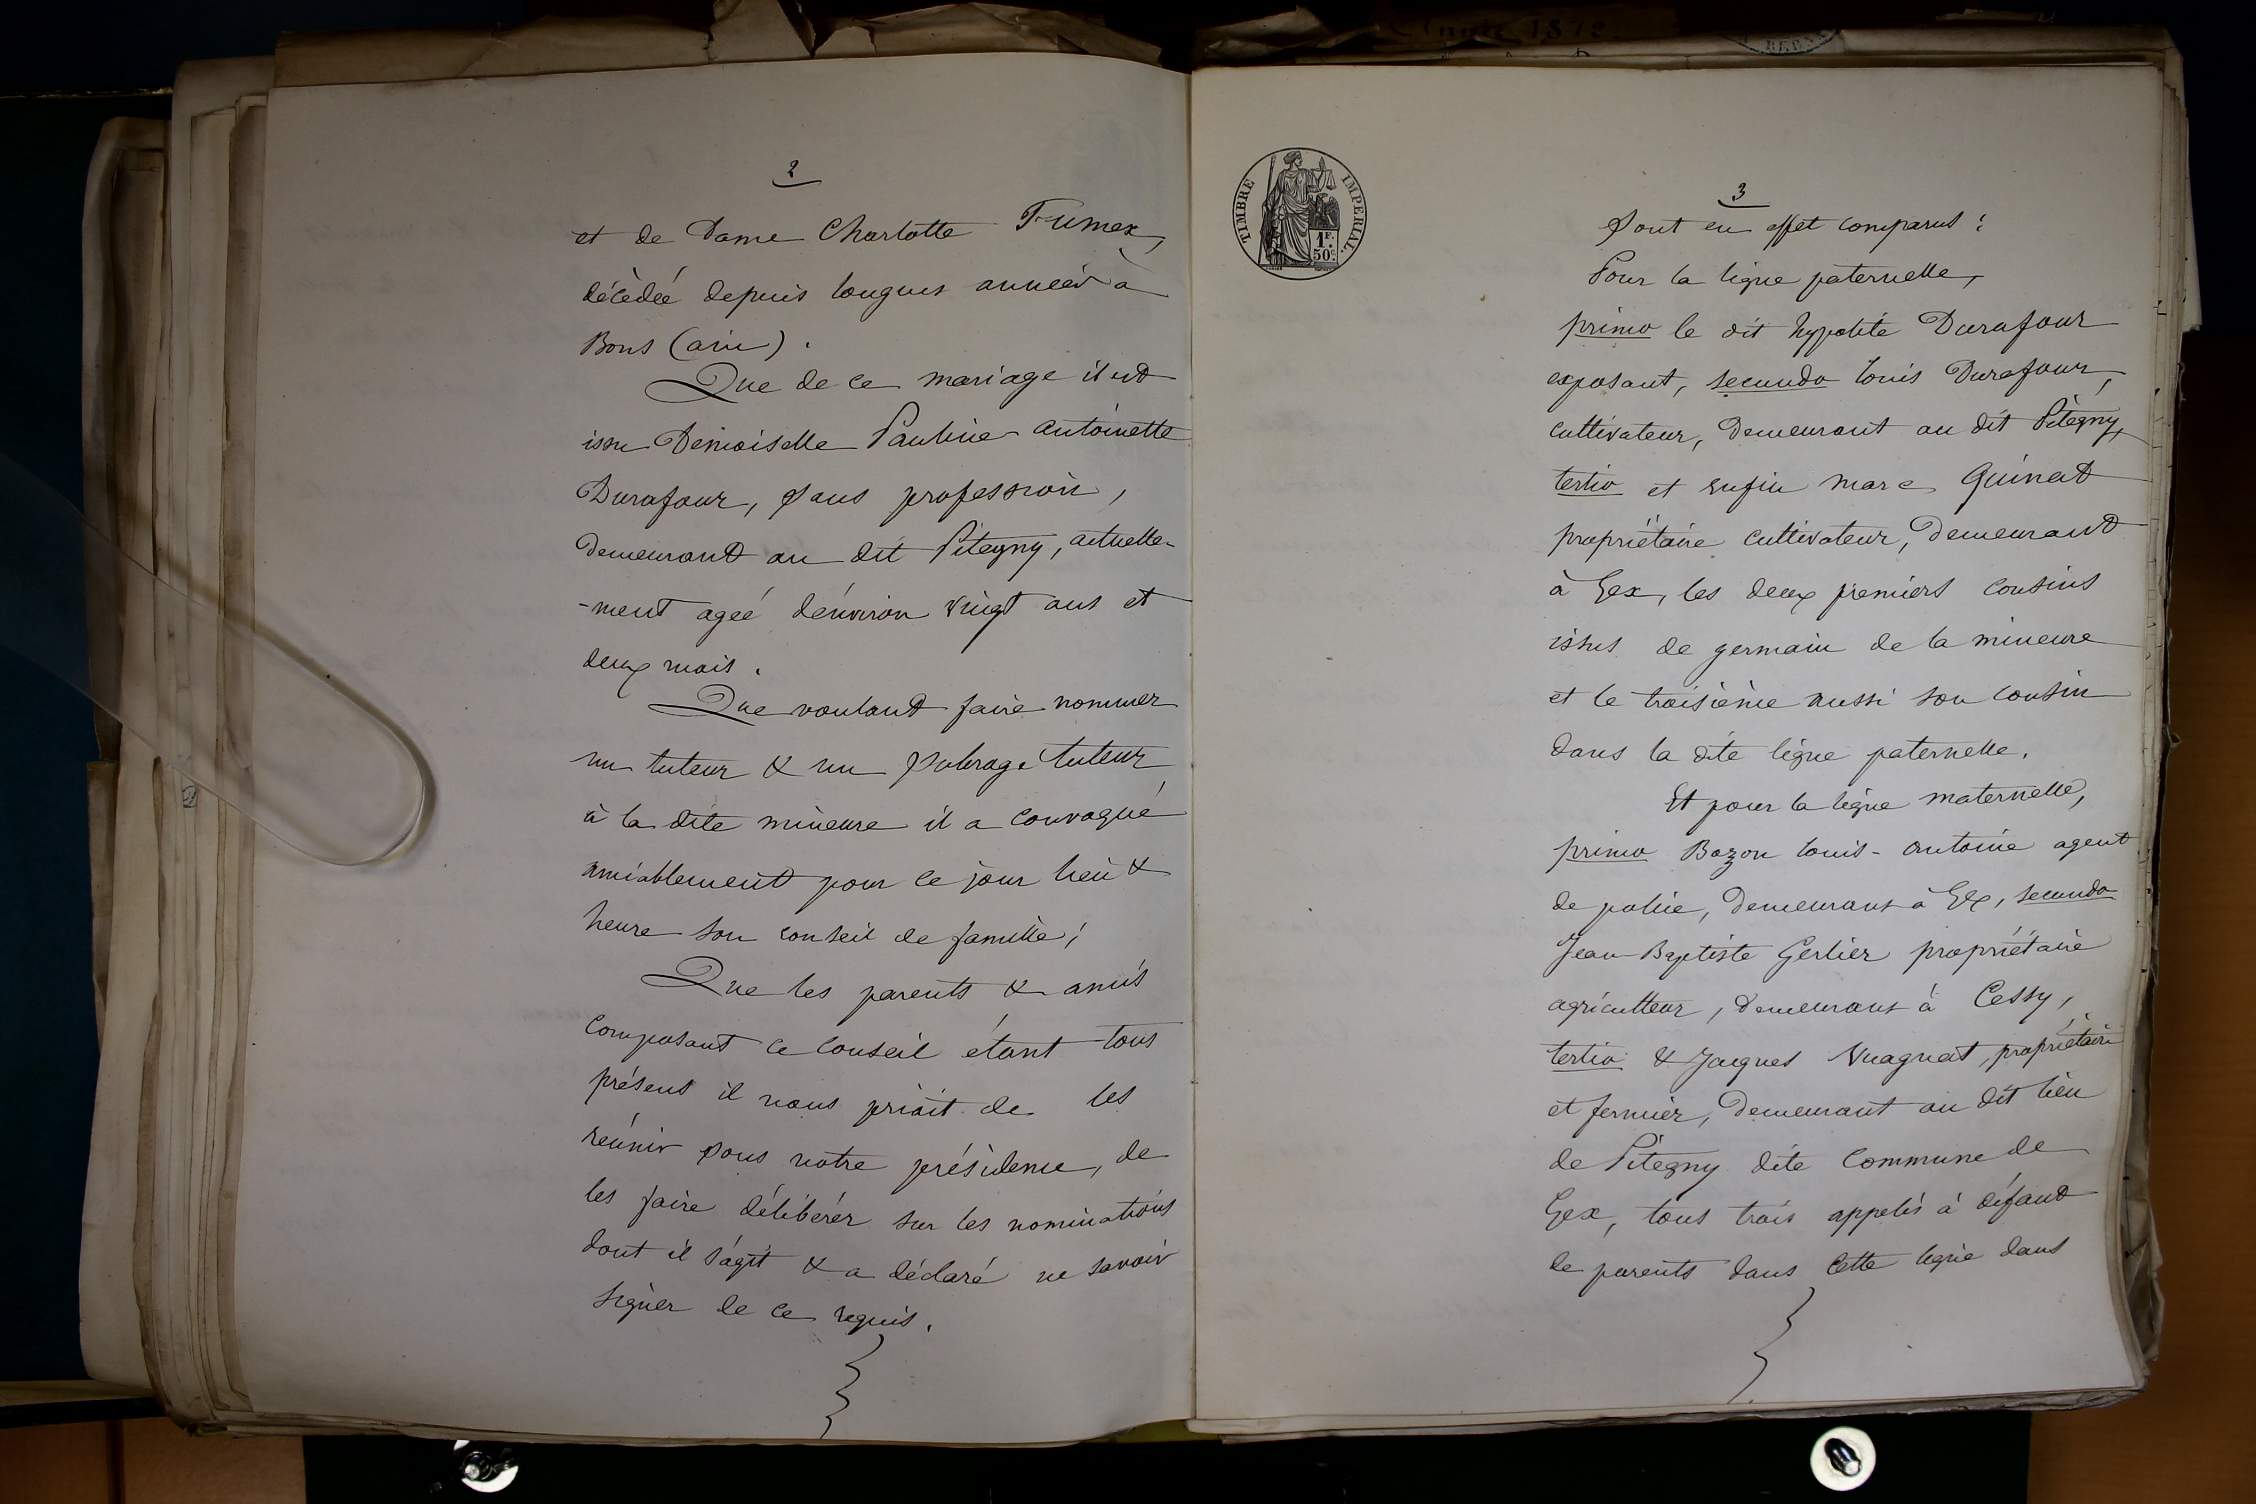 2
et de Dame Charlotte Fumex,
décédée depuis longues années à
Bons (ain).
Que de ce mariage il est
issu Demoiselle Pauline antoinette
Durafour, sans profession,
demeurant au dit Pitegny, actuelle-
-ment ageé d'environ vingt ans et
deux mois.
Que voulant faire nommer
un tuteur & un subrogé tuteur
à la dite mineure il a convoqué
amiablement pour ce jour lieu &
heure son conseil de famille;
Que les parents & amis
composant ce conseil étant tous
présens il nous priait de les
réunir sous notre présidence, de
les faire délibérer sur les nominations
dont il s'agit & a déclaré ne savoir
signer de ce requis.
TIMBRE IMPERIAL.
1F.
50c.
3
Sont en effet comparus:
Pour la ligne paternelle,
primo le dit hypolite Durafour
exposant, secundo louis Durafour,
cultivateur, demeurant au dit Pitegny,
tertio et enfin marc Guinat
propriétaire cultivateur, demeurant
à Gex, les deux premiers cousins
issus de germain de la mineure
et le troisième aussi son cousin
dans la dite ligne paternelle.
Et pour la ligne maternelle,
primo Bozon louis-antoine agent
de police, demeurant à Gex, secundo
Jean-Baptiste Gerlier propriétaire
agriculteur, demeurant à Cessy,
tertio & Jacques Vuagnat, propriétaire
et fermier, demeurant au dit lieu
de Pitegny dite Commune de
Gex, tous trois appelés à défaut
de parents dans cette ligne dans